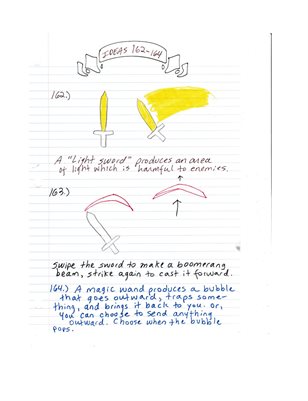 IDEAS 162-164
162.)
A "Light sword" produces an area
of light which is harmful to enemies.
163.)
Swipe the sword to make a boomerang
beam, strike again to cast it forward.
164.) A magic wand produces a bubble
that goes outward, traps some-
thing, and brings it back to you. Or,
you can choose to send anything
outward. Choose when the bubble
pops.